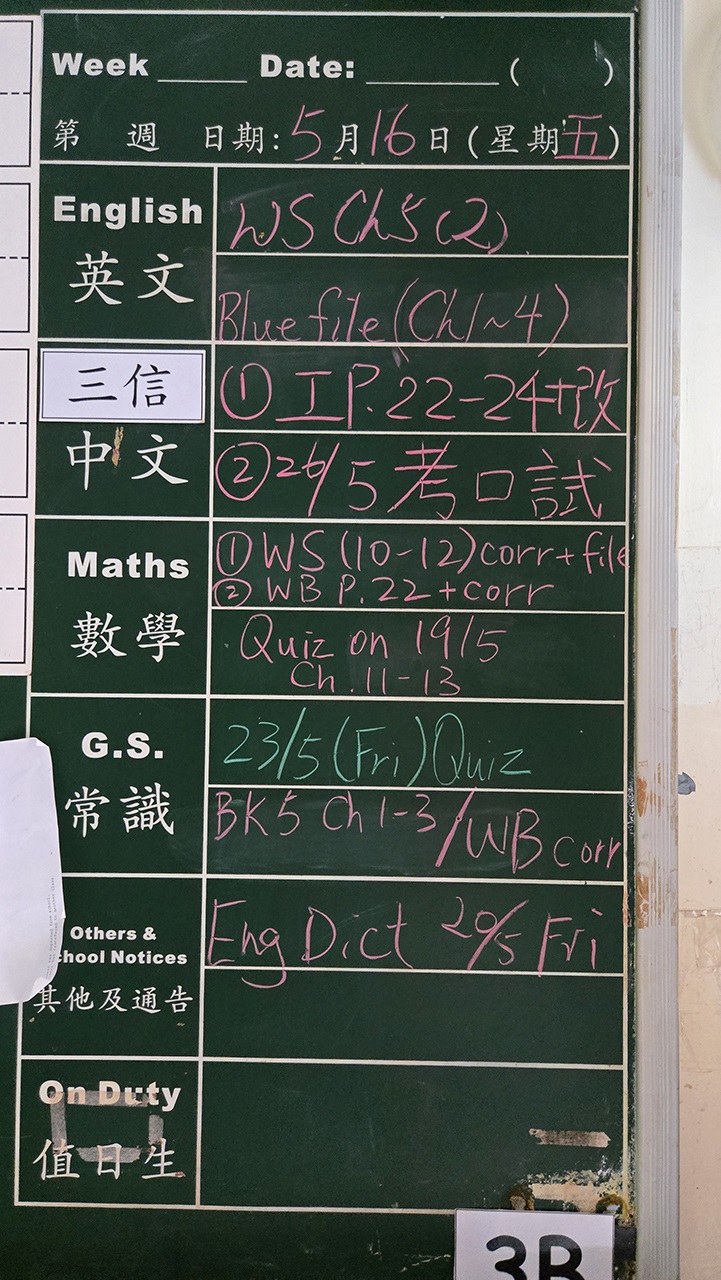 Week ______ Date: _________ (      )
第 週 日期: 5月16日(星期五)
English
英文
WS Ch5 (2)
Blue file (Ch1~4)
三信
中文
① 工P.22-24+改
② 26/5 考口試
Maths
數學
① WS (10-12) corr + file
② WB P.22 + corr
Quiz on 19/5
Ch.11-13
G.S.
常識
23/5 (Fri) Quiz
BK5 Ch 1-3/WB corr
Others &
chool Notices
其他及通告
Eng Dict 20/5 Fri
On Duty
值日生
3B